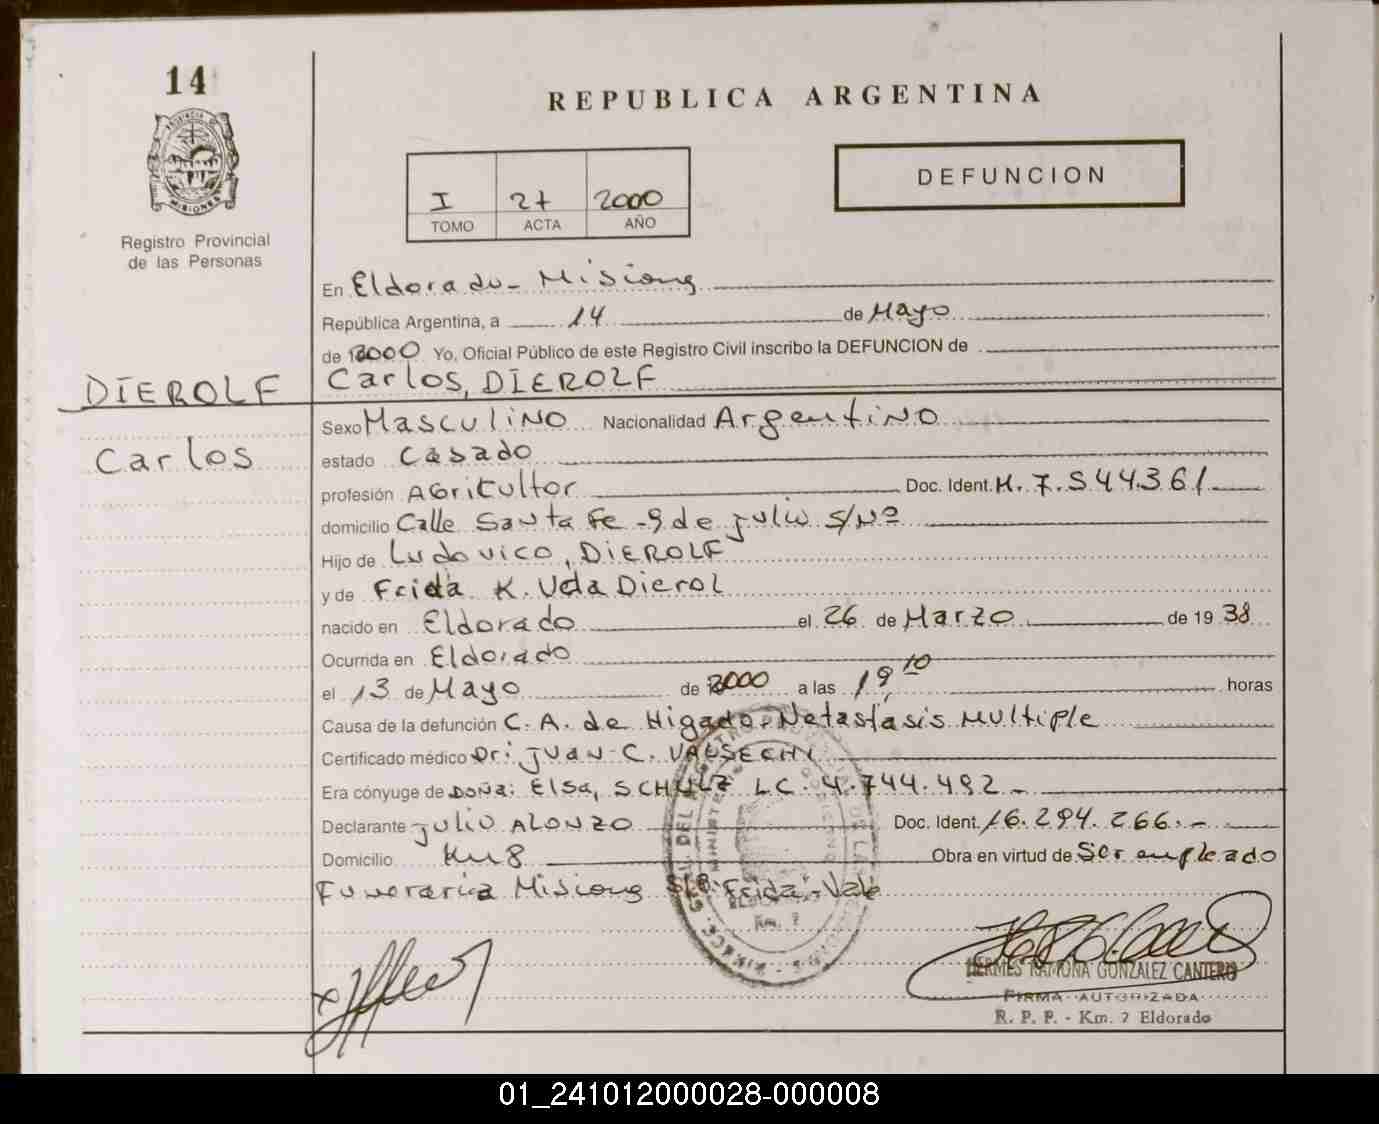 14
REPUBLICA ARGENTINA
DEFUNCION
I 27 2000
TOMO ACTA AÑO
Registro Provincial
de las Personas
PROVINCIA DE
MISIONES
En Eldorado - Misiones
República Argentina, a 14 de Mayo
de 2000 Yo, Oficial Público de este Registro Civil inscribo la DEFUNCION de
Carlos, DIEROLF
DIEROLF
Carlos
Sexo Masculino Nacionalidad Argentino
estado Casado
profesión Agricultor Doc. Ident. M. 7.544.361
domicilio Calle Santa Fe - 9 de julio S/Nº
Hijo de Ludovico, DIEROLF
y de Frida K. Uda Dierol
nacido en Eldorado el 26 de Marzo de 1938
Ocurrida en Eldorado
el 13 de Mayo de 2000 a las 19,10 horas
Causa de la defunción C.A. de Higado. Metastasis Multiple
Certificado médico Dr: juan C. VALSECHI
Era cónyuge de DOÑA: Elsa, SCHULZ LC. 4.744.492 -
Declarante julio ALONZO Doc. Ident. 16.294.266.-
Domicilio Km 8 Obra en virtud de Ser empleado
Funeraria Misiones Frida - Vale
Km. 7
HERMES RAMONA GONZALEZ CANTERO
FIRMA AUTORIZADA
R. P. P. - Km. 7 Eldorado
01_241012000028-000008